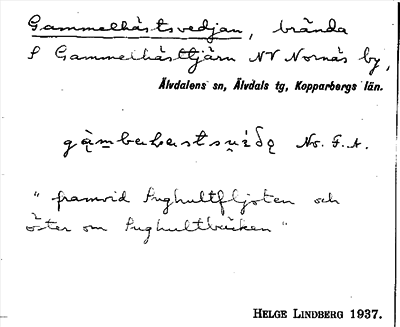 Gammelhästsvedjan, brända
S Gammelhästtjärn NV Nornäs by,
Älvdalens sn, Älvdals tg, Kopparbergs län.
No. F.A.
"framvid Pughultfljoten och
öster om Pughultbäcken"
HELGE LINDBERG 1937.